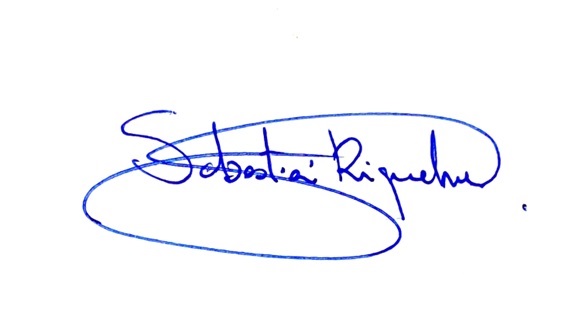 Sebastián Riquelme